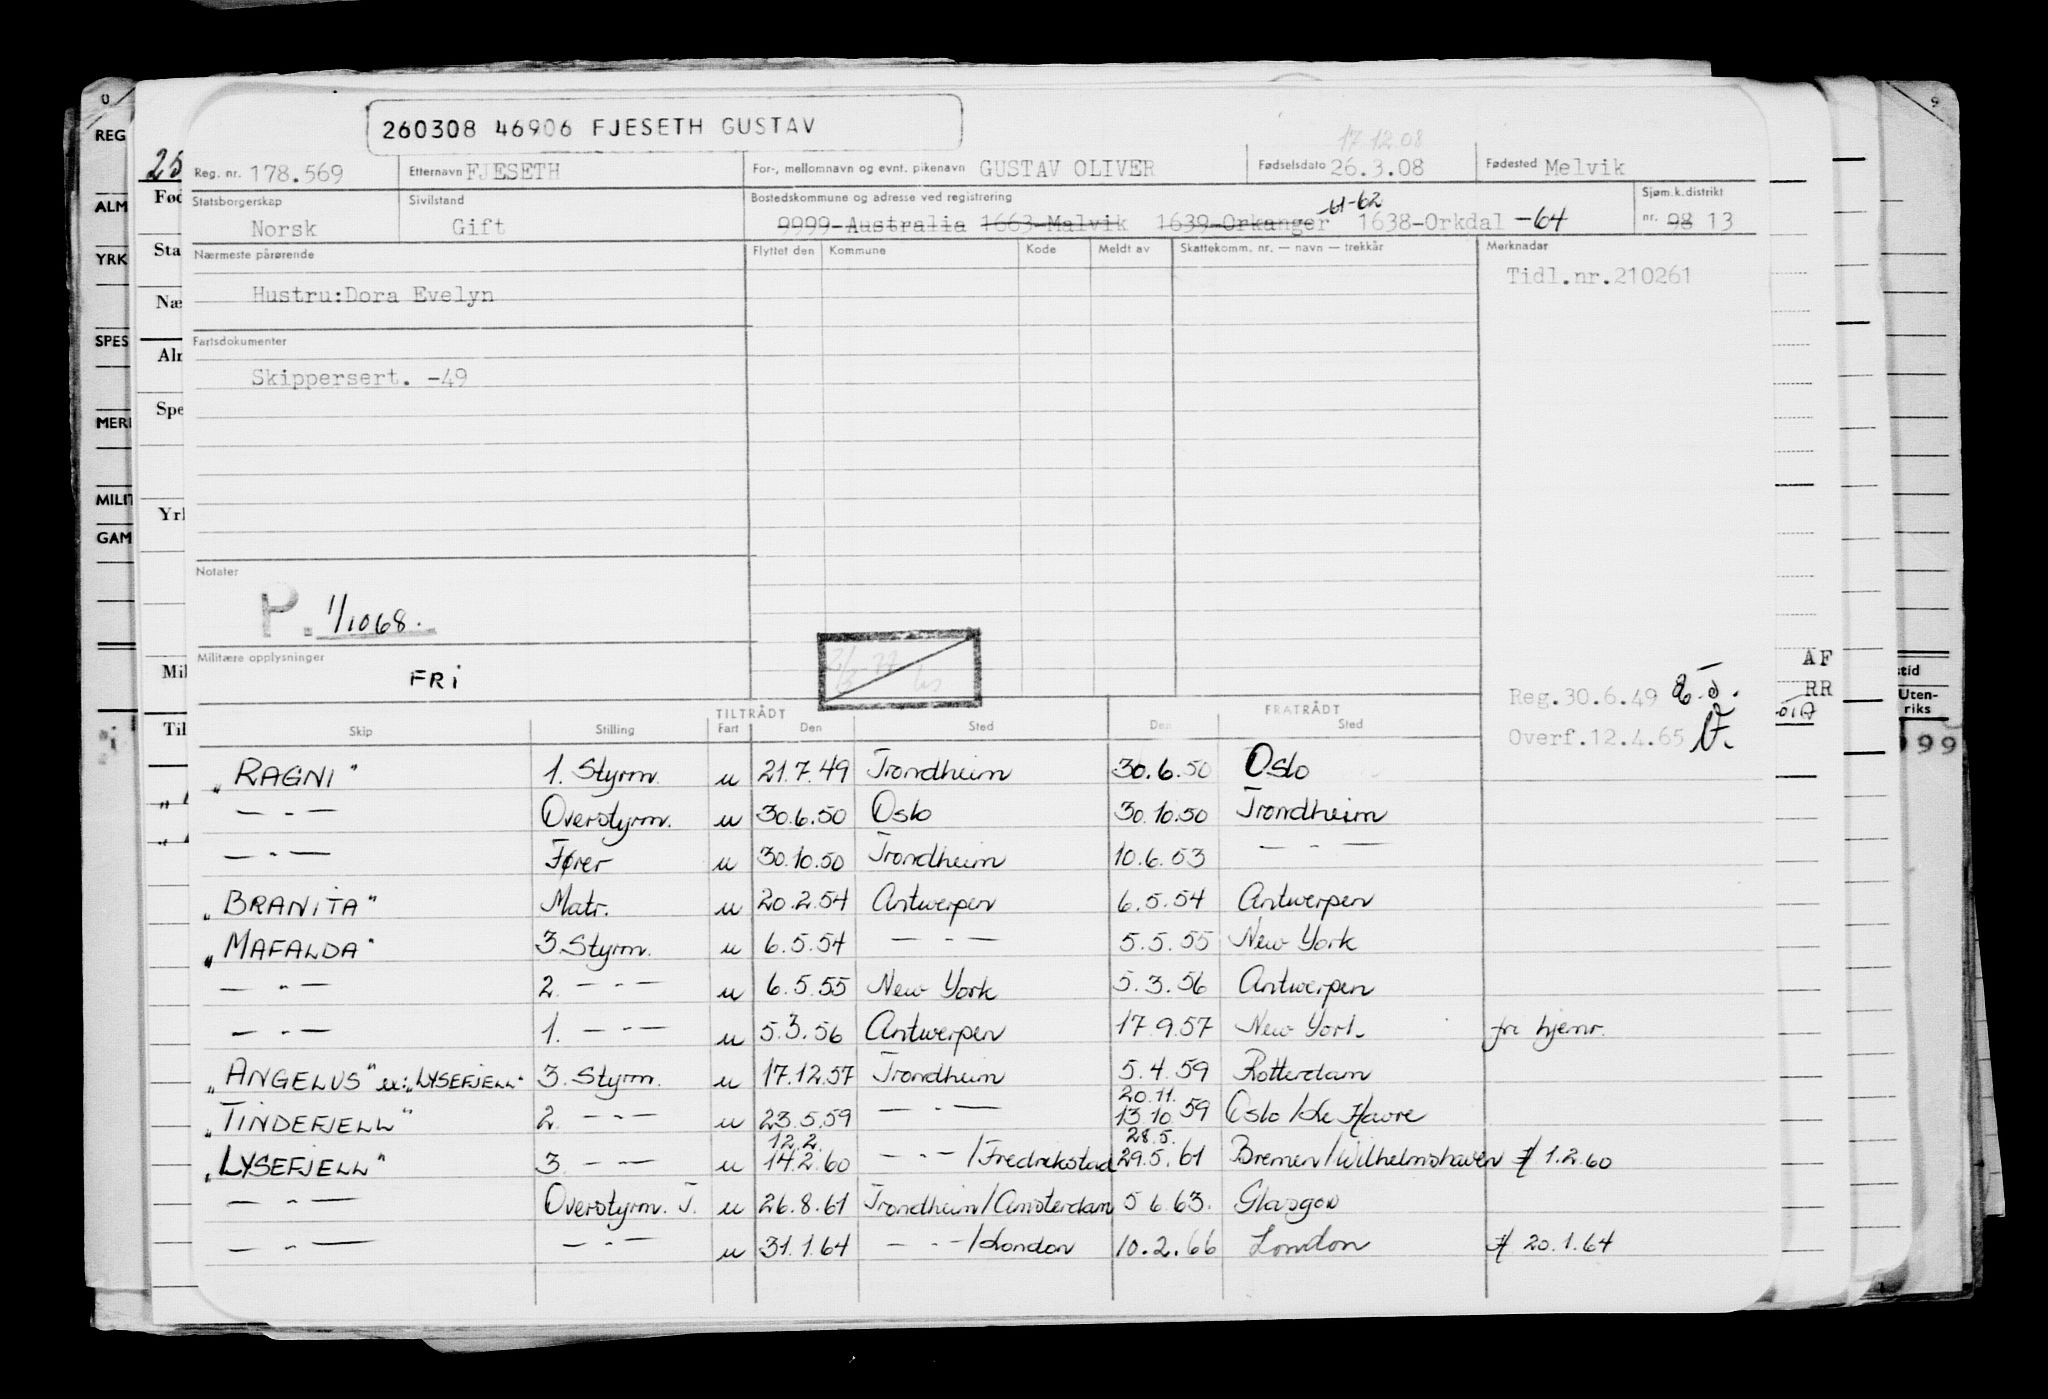 260308 46906 FJESETH GUSTAV
17.12.08
25 Reg. nr. 178.569 Etternavn FJESETH For-, mellomnavn og evnt. pikenavn GUSTAV OLIVER Fødselsdato 26.3.08 Fødested Melvik
Statsborgerskap Sivilstand Bostedskommune og adresse ved registrering Sjøm.k.distrikt
Norsk Gift 9999-Australia 1663-Malvik 1639-Orkanger -61-62 1638-Orkdal -64 nr. 98 13
Nærmeste pårørende Flyttet den Kommune Kode Meldt av Skattekomm. nr. — navn — trekkår Merknadar
Hustru:Dora Evelyn Tidl.nr.210261
Fartsdokumenter
Skippersert. -49
Notater
P. 1/10 68.
Militære opplysninger
FRI
Reg.30.6.49
Overf.12.4.65
TILTRÅDT FRATRÅDT
Skip Stilling Fart Den Sted Den Sted
"RAGNI" 1. Styrm. u 21.7.49 Trondheim 30.6.50 Oslo
— " — Overstyrm. u 30.6.50 Oslo 30.10.50 Trondheim
— " — Fører u 30.10.50 Trondheim 10.6.53 — " —
"BRANITA" Matr. u 20.2.54 Antwerpen 6.5.54 Antwerpen
"MAFALDA" 3. Styrm. u 6.5.54 — " — 5.5.55 New York
— " — 2. — " — u 6.5.55 New York 5.3.56 Antwerpen
— " — 1. — " — u 5.3.56 Antwerpen 17.9.57 New York fri hjemr.
"ANGELUS" u: "LYSEFJELL" 3. Styrm. u 17.12.57 Trondheim 5.4.59 Rotterdam
"TINDEFJELL" 2. — " — u 23.5.59 — " — 20.11. 13.10 59 Oslo/Le Havre
"LYSEFJELL" 3. — " — u 12.2. 14.2.60 — " — /Fredrikstad 28.5. 29.5.61 Bremen/Wilhelmshaven H 1.2.60
— " — Overstyrm. T. u 26.8.61 Trondheim/Amsterdam 5.6.63. Glasgow
— " — — " — u 31.1.64 — " — /London 10.2.66 London H 20.1.64
REG
ALM
YRK
SPES
MERK
MILIT
GAM
Fød
Sta
Næ
Alr
Spe
Yrl
Mil
Til
AF
RR
stid
Uten-
riks
99